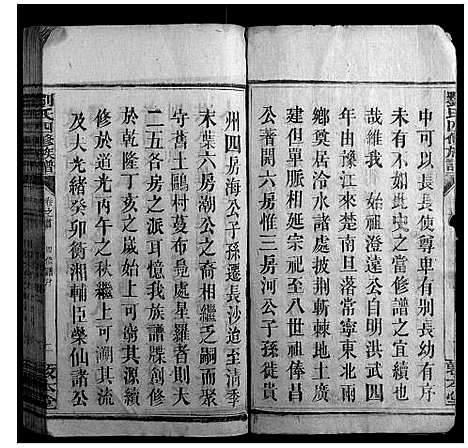 劉氏四修族譜
中可以長長使尊卑有別長幼有序
未有不如此史之當修譜之宜續也
哉維我　始祖澄遠公自明洪武四
年由豫江來楚南旦落常寧東北兩
鄉奠居泠水諸處披荆斬棘地土廣
建但單脈相延宗祀至八世祖倳昌
公著開六房惟三房河公子孫徙貴
州四房海公子孫遷長沙道至清季
木葉六房潮公之裔相繼乏嗣而嗣
守舊土鷗村蔓布鳧處星羅者則大
二五各房之派耳憶我族譜牒創修
於乾隆丁亥之歲始上可窮其源再
修於道光丙午之秋繼上可闡其流
及大光緒癸卯衡湘輔臣榮仙諸公
劉氏四修族譜
卷之首